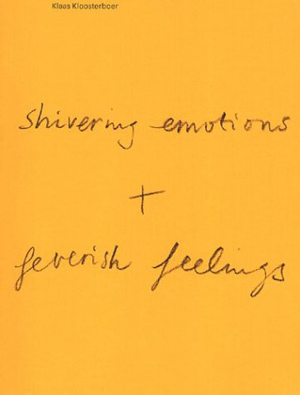 Klaas Kloosterboer
Shivering emotions
+
feverish feelings